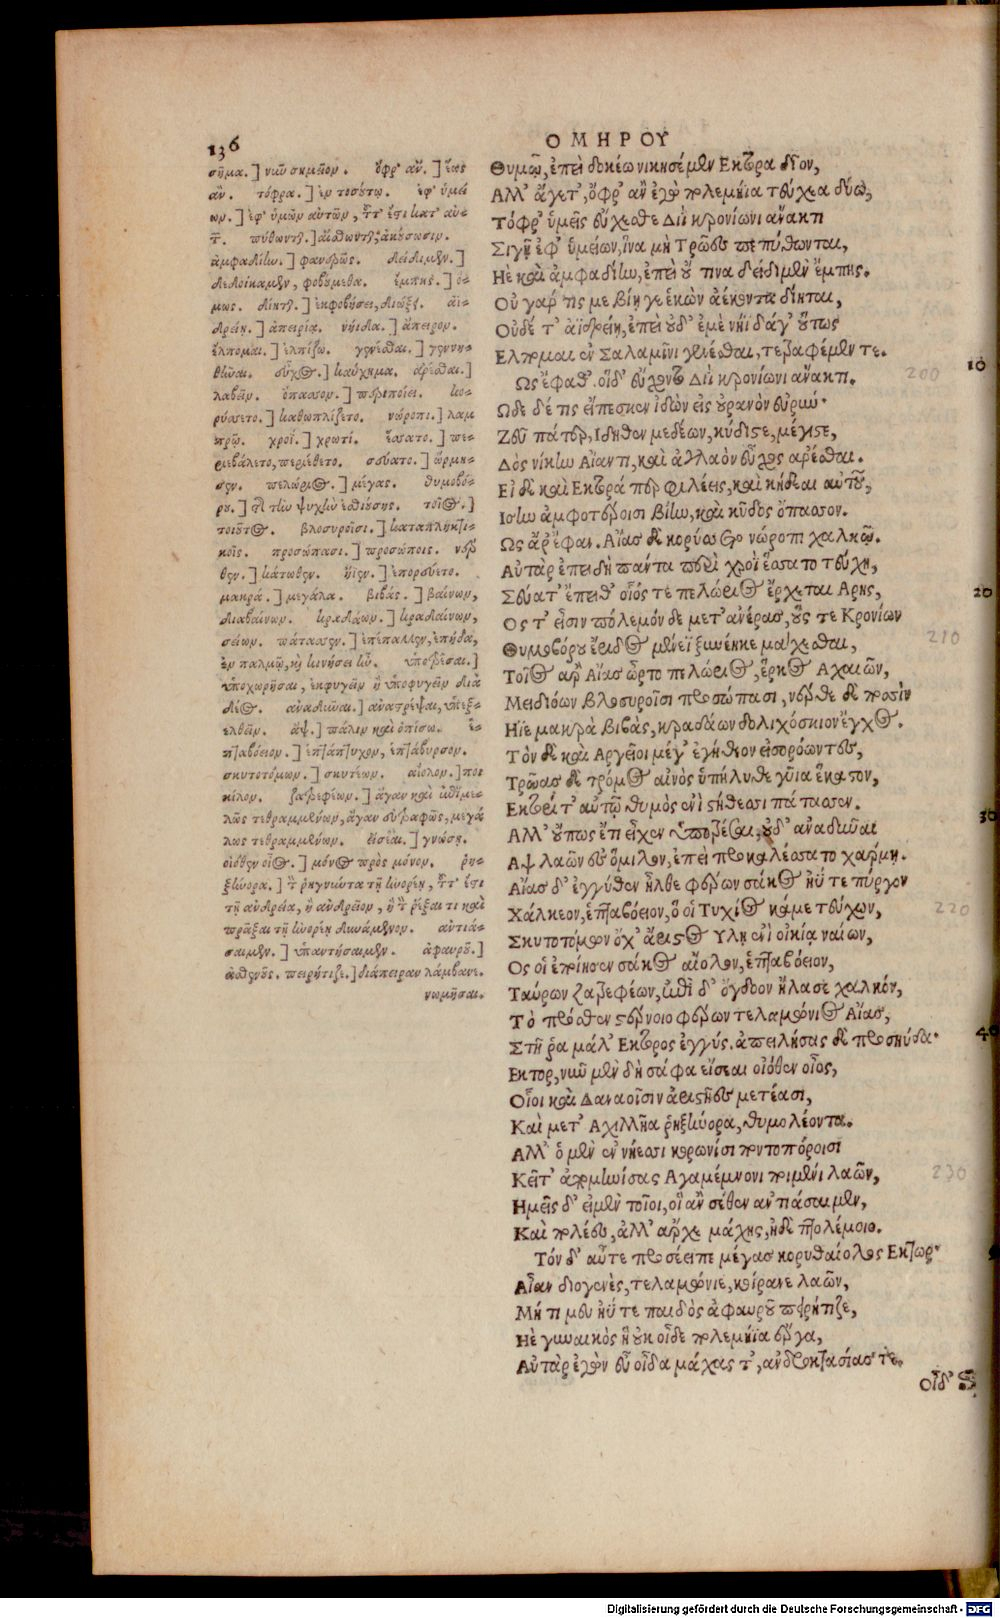 136
ΟΜΗΡΟΥ
σῆμα.] νιῶ σημεῖον. ὄφρ' ἂν.] ἕως
ἂν. τόφρα.] ἐν τοσούτω. ἐφ' ὑμεί
ων.] ἐφ' ὑμῶν αὐτῶν, ἤτ' ἔστι κατ' αὐ-
τ. πύθωνται.] αἴσθωνται, ἀκούσωσιν.
ἀμφαδίην.] φανερῶς. δείδιμεν.]
δεδοίκαμεν, φοβούμεθα. ἔμπης.] ὅ-
μως. δίηται.] ἐκφοβήσει, διώξει. ἀϊ-
δρείη.] ἀπειρία. νήϊδα.] ἄπειρον.
ἔλπομαι.] ἐλπίζω. γενέσθαι.] γεννη-
θῆναι. εὖχος.] καύχημα. ἀρέσθαι.]
λαβεῖν. ὄπασον.] περιποίει. κο-
ρύσετο.] καθωπλίζετο. νώροπι.] λαμ
πρῷ. χροΐ.] χρωτί. ἕσσατο.] πε-
ριεβάλετο, περιέθετο. σεύατο.] ὥρμη-
σεν. πελώριος.] μέγας. θυμοβό-
ρου.] τὴν ψυχὴν ἐσθιούσης. τοῖος.]
τοιοῦτος. βλοσυροῖσι.] καταπληκτι-
κοῖς. προσώπασι.] προσώποις. νέρ
θεν.] κάτωθεν. ἤϊεν.] ἐπορεύετο.
μακρά.] μεγάλα. βιβάς.] βαίνων,
διαβαίνων. κραδάων.] κραδαίνων,
σείων. πάτασσεν.] ἐπέπαλλεν, ἐπήδα,
ἐν παλμῷ, καὶ κινήσει ἦν. ὑποτρέσαι.]
ὑποχωρῆσαι, ἐκφυγεῖν ἢ ὑποφυγεῖν διὰ
δέος. ἀναδῦναι.] ἀνατρέψαι, ὑπεξ-
ελθεῖν. ἄψ.] πάλιν καὶ ὀπίσω. ἑ-
πταβόειον.] ἑπτάπτυχον, ἑπτάβυρσον.
σκυτοτόμων.] σκυτέων. αἰόλον.] ποι
κίλον. ζατρεφέων.] ἄγαν καὶ ἐπιμε-
λῶς τεθραμμένων, ἄγαν εὐτραφῶς, μεγά
λως τεθραμμένων. εἴσεαι.] γνώσῃ.
οἰόθεν οἶος.] μόνος πρὸς μόνον. ῥη-
ξήνορα.] τ ῥηγνύντα τῇ ἠνορέῃ, ἤτ' ἔστι
τῇ ἀνδρεία, ἢ ἀνδρεῖον, ἢ τ ῥέξαι τι καὶ
πρᾶξαι τῇ ἠνορέῃ δυνάμενον. ἀντιά-
σαιμεν.] ὑπαντήσαιμεν. ἀφαυροῦ.]
ἀσθενοῦς. πειρήτιζε.] διάπειραν λάμβανε.
νωμῆσαι.
Θυμῷ, ἐπεὶ δοκέω νικησέμεν Εκτορα δῖον,
Αλλ' ἄγετ', ὄφρ' ἂν ἐγὼ πολεμήϊα τεύχεα δύω,
Τόφρ' ὑμεῖς εὔχεσθε Διῒ κρονίωνι ἄνακτι
Σιγῇ ἐφ' ὑμείων, ἵνα μὴ Τρῶές γε πύθωνται,
Ηὲ καὶ ἀμφαδίην, ἐπεὶ οὔ τινα δείδιμεν ἔμπης.
Οὐ γάρ τίς με βίῃ γε ἑκὼν ἀέκοντα δίηται,
Οὐδέ τ' ἀϊδρείῃ, ἐπεὶ οὐδ' ἐμὲ νήϊδά γ' οὕτως
Ελπομαι ἐν Σαλαμῖνι γενέσθαι, τεραφέμεν τε.
Ως ἔφαθ'. οἵδ' εὔχοντο Διῒ κρονίωνι ἄνακτι. 200
Ωδε δέ τις εἴπεσκεν ἰδὼν εἰς οὐρανὸν εὐρύν·
Ζεῦ πάτερ, Ιδηθεν μεδέων, κύδιστε, μέγιστε,
Δὸς νίκην Αἴαντι, καὶ ἀγλαὸν εὖχος ἀρέσθαι.
Εἰ δὲ καὶ Εκτορά περ φιλέεις, καὶ κήδεαι αὐτοῦ,
Ισην ἀμφοτέροισι βίην, καὶ κῦδος ὄπασσον.
Ως ἄρ' ἔφαν. Αἴας δὲ κορύσσετο νώροπι χαλκῷ.
Αὐτὰρ ἐπειδὴ πάντα περὶ χροῒ ἕσσατο τεύχη,
Σεύατ' ἔπειθ' οἷός τε πελώριος ἔρχεται Αρης,
Ος τ' εἶσιν πόλεμόν δε μετ' ἀνέρας, οὕς τε Κρονίων
Θυμοβόρου ἔριδος μένεϊ ξυνέηκε μάχεσθαι, 210
Τοῖος ἄρ' Αἴας ὦρτο πελώριος, ἕρκος Αχαιῶν,
Μειδιόων βλοσυροῖσι προσώπασι, νέρθε δὲ ποσὶν
Ηϊε μακρὰ βιβὰς, κραδάων δολιχόσκιον ἔγχος.
Τὸν δὲ καὶ Αργεῖοι μέγ' ἐγήθεον εἰσορόωντες,
Τρῶας δὲ τρόμος αἰνὸς ὑπήλυθε γυῖα ἕκαστον,
Εκτορί τ' αὐτῷ θυμὸς ἐνὶ στήθεσσι πάτασσεν.
Αλλ' οὔπως ἔτι εἶχεν ὑποτρέσαι, οὐδ' ἀναδῦναι
Αψ λαῶν ἐς ὅμιλον, ἐπεὶ προκαλέσσατο χάρμῃ.
Αἴας δ' ἐγγύθεν ἦλθε φέρων σάκος ἠΰτε πύργον
Χάλκεον, ἑπταβόειον, ὅ οἱ Τυχίος κάμε τεύχων, 220
Σκυτοτόμων ὄχ' ἄριστος Υλῃ ἐνὶ οἰκία ναίων,
Ος οἱ ἐποίησεν σάκος αἰόλον, ἑπταβόειον,
Ταύρων ζατρεφέων, ἐπὶ δ' ὄγδοον ἤλασε χαλκόν,
Τὸ πρόσθεν στέρνοιο φέρων τελαμώνιος Αἴας,
Στῆ ῥα μάλ' Εκτορος ἐγγύς. ἀπειλήσας δὲ προσηύδα·
Εκτορ, νῦν μὲν δὴ σάφα εἴσεαι οἰόθεν οἶος,
Οἷοι καὶ Δαναοῖσιν ἀριστῆες μετέασι,
Καὶ μετ' Αχιλλῆα ῥηξήνορα, θυμολέοντα.
Αλλ' ὁ μὲν ἐν νήεσσι κορωνίσι ποντοπόροισι
Κεῖτ' ἀπομηνίσας Αγαμέμνονι ποιμένι λαῶν, 230
Ημεῖς δ' εἰμὲν τοῖοι, οἳ ἂν σέθεν ἀντιάσαιμεν,
Καὶ πολέες, ἀλλ' ἄρχε μάχης, ἠδὲ πτολέμοιο.
Τόν δ' αὖτε προσέειπε μέγας κορυθαίολος Εκτωρ·
Αἶαν διογενὲς, τελαμώνιε, κοίρανε λαῶν,
Μή τι μευ ἠΰτε παιδὸς ἀφαυροῦ πειρήτιζε,
Ηὲ γυναικὸς ἣ οὐκ οἶδε πολεμήϊα ἔργα,
Αὐτὰρ ἐγὼν εὖ οἶδα μάχας τ', ἀνδροκτασίας τε.
Οἶδ'
10
20
30
40
Digitalisierung gefördert durch die Deutsche Forschungsgemeinschaft - DFG